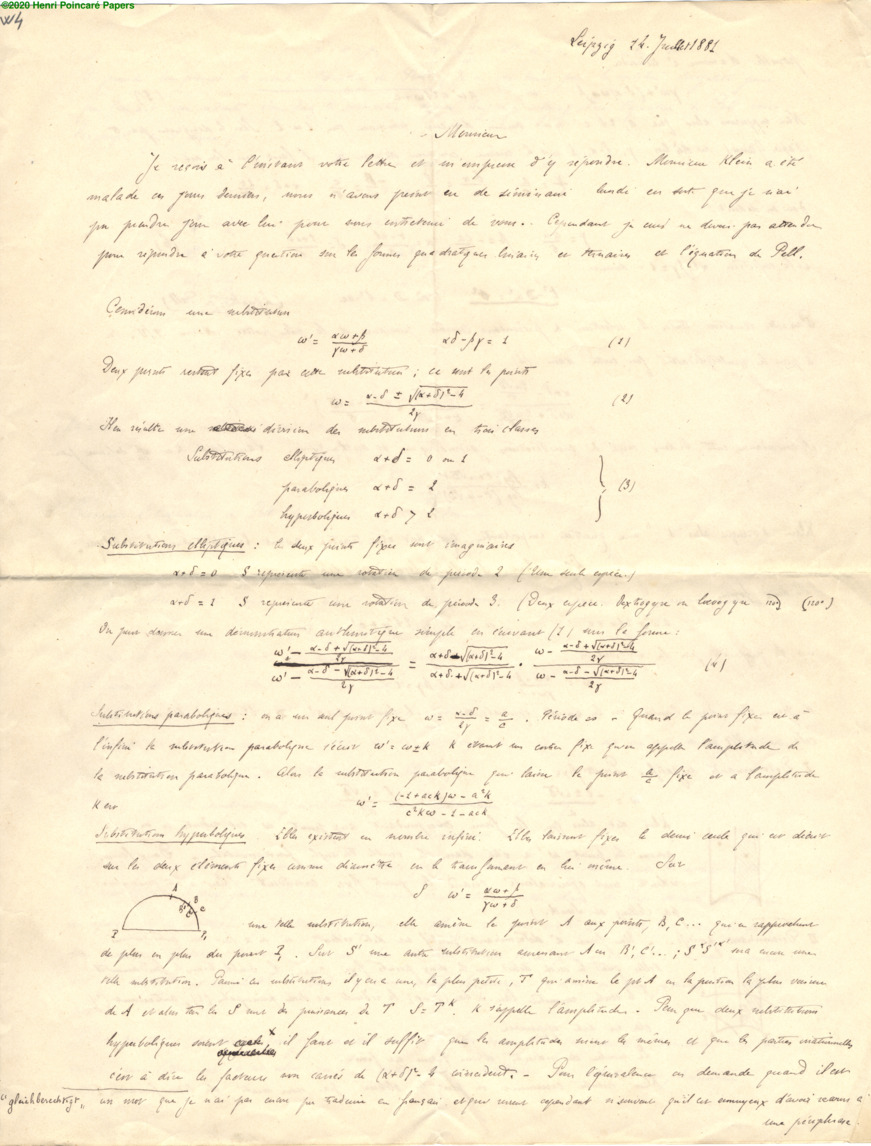 ©2020 Henri Poincaré Papers
W4
Leipzig 14. Juillet 1881
Monsieur
Je reçois à l'instant votre lettre et m'empresse d'y répondre. Monsieur Klein a été
malade ces jours derniers, nous n'avons point eu de séminaire lundi en sorte que je n'ai
pu prendre jour avec lui pour nous entretenir de vous. Cependant je crois ne devoir pas attendre
pour répondre à votre question sur les formes quadratiques binaires et ternaires et l'équation de Pell.
Considérons une substitution
ω' = (αω+β)/(γω+δ) αδ-βγ = 1 (1)
Deux points restent fixes par cette substitution ; ce sont les points
ω = (α-δ ± √((α+δ)²-4))/2γ (2)
Il en résulte une division des substitutions en trois classes
Substitutions elliptiques α+δ = 0 ou 1
paraboliques α+δ = 2 (3)
hyperboliques α+δ > 2
Substitutions elliptiques : les deux points fixes sont imaginaires
α+δ = 0 S représente une rotation de période 2 (Une seule espèce.)
α+δ = 1 S représente une rotation de période 3. (Deux espèces. Dextrogyre ou lœvogyre)
On peut donner une démonstration arithmétique simple en écrivant (1) sous la forme :
(ω' - (α-δ+√((α+δ)²-4))/2γ)/(ω' - (α-δ-√((α+δ)²-4))/2γ) = (α+δ-√((α+δ)²-4))/(α+δ+√((α+δ)²-4)) · (ω - (α-δ+√((α+δ)²-4))/2γ)/(ω - (α-δ-√((α+δ)²-4))/2γ) (4)
Substitutions paraboliques : on a un seul point fixe ω = (α-δ)/2γ = a/c. Période ∞ - Quand le point fixe est à
l'infini la substitution parabolique s'écrit ω' = ω±k k étant un certain fixe qu'on appelle l'amplitude de
la substitution parabolique. Alors la substitution parabolique qui laisse le point a/c fixe et a l'amplitude
k est ω' = ((-1+ack)ω - a²k)/(c²kω - 1 - ack)
Substitutions hyperboliques. Elles existent en nombre infini. Elles laissent fixes le demi cercle qui est décrit
sur les deux éléments fixes comme diamètre en le transformant en lui même. Soit
S ω' = (αω+β)/(γω+δ)
A B' B C' C
une telle substitution, elle amène le point A aux points, B, C... qui se rapprochent
de plus en plus du point. Soit S' une autre substitution amenant A en B', C'... ; sera encore une
telle substitution. Parmi ces substitutions il y en a une, la plus petite, T qui amène le pt A en la position la plus voisine
de A et alors tous les S sont des puissances de T S = T^k. k s'appelle l'amplitude. - Pour que deux substitutions
hyperboliques soient × il faut et il suffit que les amplitudes soient les mêmes et que les parties irrationnelles
c'est à dire les facteurs non carrés de (α+δ)²-4 coïncident. - Pour l'équivalence on demande quand il est
"gleichberechtigt" un mot que je n'ai pas encore pu traduire en français et qui revient cependant si souvent qu'il est ennuyeux d'avoir recours à
une périphrase.